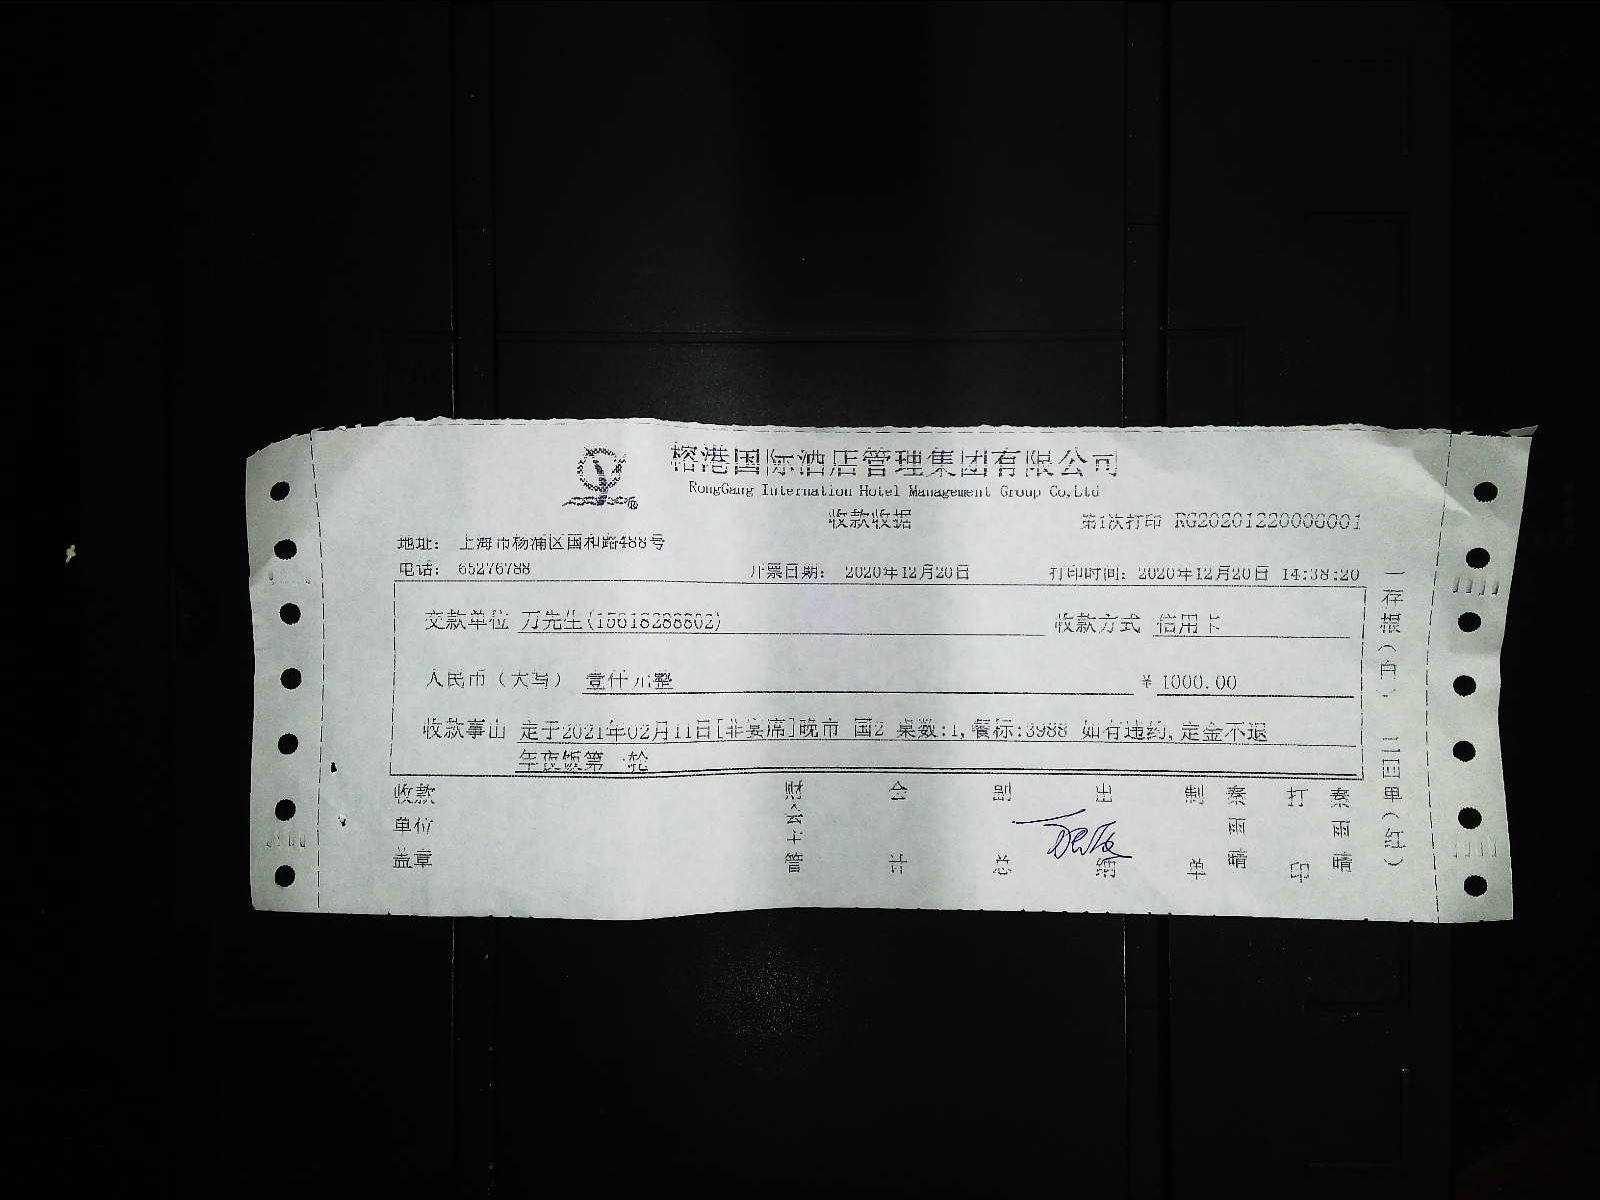 榕港国际酒店管理集团有限公司
RongGang Internation Hotel Management Group Co,Ltd
收款收据
第1次打印 RG20201220006001
地址: 上海市杨浦区国和路488号
电话: 65276788
开票日期: 2020年12月20日
打印时间: 2020年12月20日 14:38:20
交款单位 万先生(15618288802)
收款方式 信用卡
人民币(大写) 壹仟元整
¥ 1000.00
收款事由 定于2021年02月11日[非宴席]晚市 国2 桌数:1,餐标:3988 如有违约,定金不退
年夜饭第一轮
收款单位盖章
财会主管
会计
副总
出纳
制单
秦雨晴
打印
秦雨晴
一存根(白)
二回单(红)